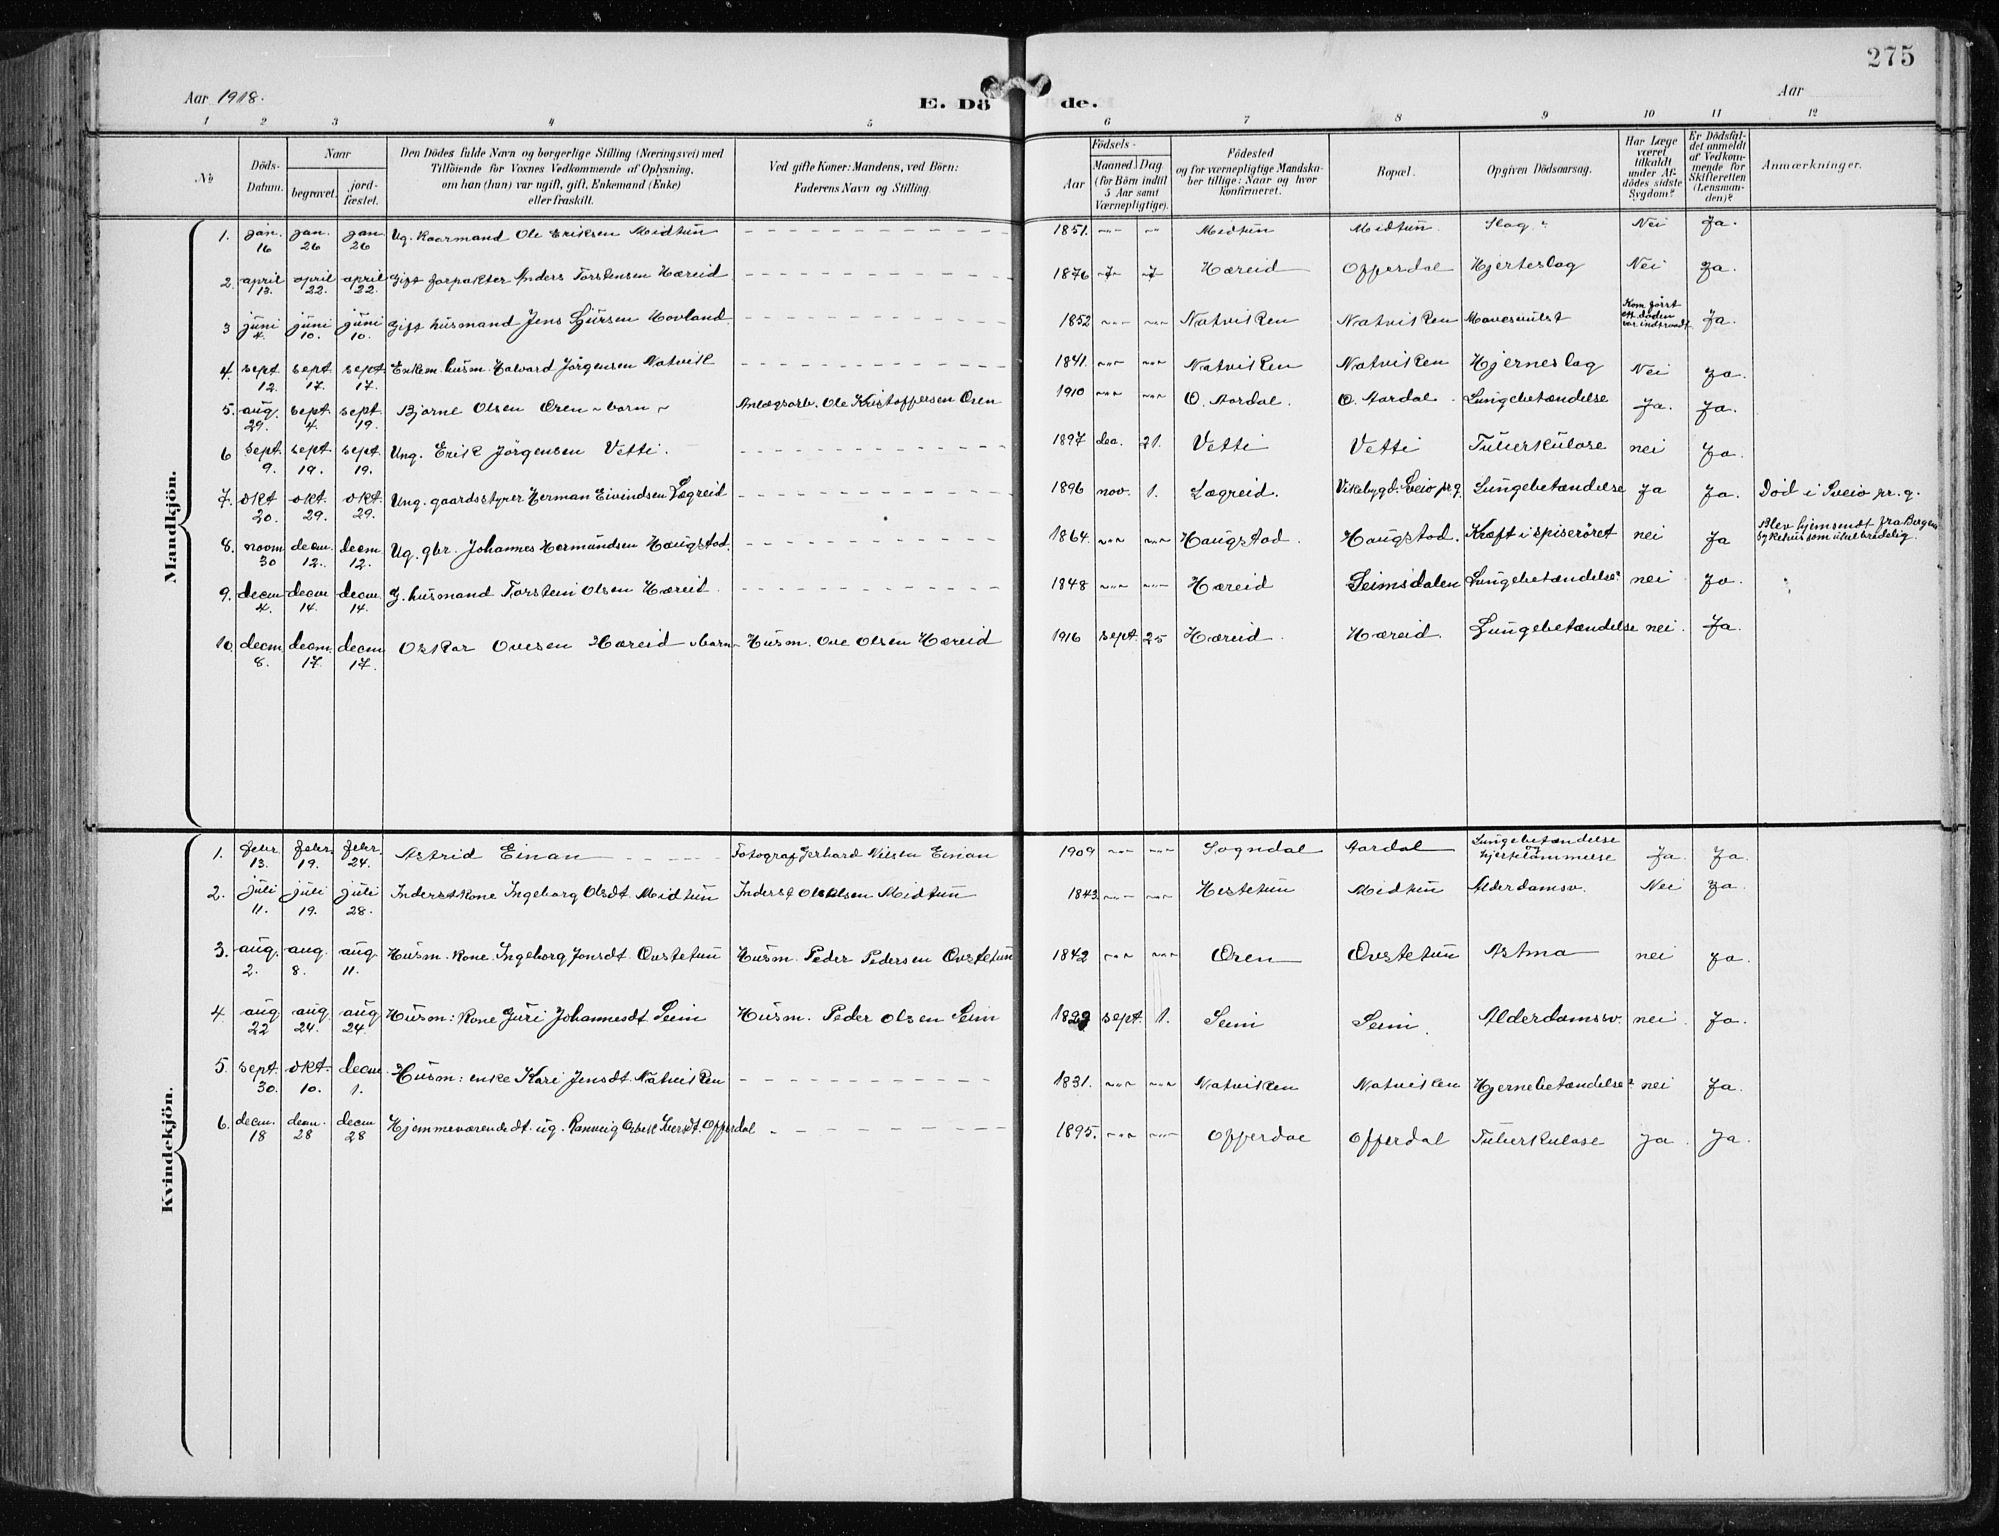 275
Aar 1918.
E. Döde.
Aar
1 2 3 4 5 6 7 8 9 10 11 12
№
Döds-Datum.
Naar
begravet.
jord-fæstet.
Den Dödes fulde Navn og borgerlige Stilling (Næringsvei) med
Tilföiende for Voxnes Vedkommende af Oplysning,
om han (hun) var ugift, gift, Enkemand (Enke)
eller fraskilt.
Ved gifte Koner: Mandens, ved Börn:
Faderens Navn og Stilling.
Födsels-
Aar
Maaned Dag
(for Börn indtil
5 Aar samt
Værnepligtige).
Födested
og for værnepligtige Mandska-
ber tillige: Naar og hvor
konfirmeret.
Bopæl.
Opgiven Dödsaarsag.
Har Læge
været
tilkaldt
under Af-
dödes sidste
Sygdom?
Er Dödsfal-
det anmeldt
af Vedkom-
mende for
Skifteretten
(Lensman-
den)?
Anmærkninger.
Mandkjön.
1. jan. 16 jan. 26 jan 26 Ug. Kaarmand Ole Eriksen Midtun 1851. Midtun Midtun. Slag Nei Ja.
2. april 13. april 22. april 22. Gift forpakter Anders Torstensen Hæreid 1876 Hæreid Offerdal Hjerteslag Nei Ja.
3 juni 4. juni 10. juni 10. Gift husmand Jens Sjursen Hovland 1852 Natviken Natviken Mavesvulst Kom først eft. døden var indtraadt Ja.
4. sept 12. sept 17. sept. 17. Enkem. husm. Halvard Jörgensen Natvik 1841. Natviken Natviken Hjerneslag Nei Ja.
5. aug. 29. sept 4. sept 19. Bjarne Olsen Øren - barn - Anlægsarb. Ole Kristoffersen Øren 1910 Ø. Aardal. Ø. Aardal. Lungebetændelse Ja. Ja.
6 sept. 9. sept 19. sept. 19. Ung. Erik Jörgensen Vetti. 1897 dec. 21. Vetti Vetti Tuberkulose nei Ja.
7. okt 20. okt. 29. okt. 29. Ung. gaardsstyrer Herman Eivindsen Lægreid 1896 nov. 1. Lægreid. Vikebygd. Sveio prg. Lungebetændelse Ja Ja. Död i Sveio pr. g.
8. novm 30 decm. 12. decm. 12. Ug. gbr. Johannes Hermundsen Haugstad. 1864. Haugstad. Haugstad. Kræft i spiserøret nei Ja Blev hjemsendt fra Bergens
sykehus som uhelbredelig.
9. decm 4. decm 14. decm. 14. G. husmand Torstein Olsen Hæreid. 1848 Hæreid Seimsdalen Lungebetændelse nei Ja.
10. decm 8. decm. 17. decm 17. Oskar Ovesen Hæreid - barn - Husm. Ove Olsen Hæreid 1916 sept. 25 Hæreid. Hæreid. Lungebetændelse nei. Ja.
Kvindekjön.
1. febr 13. febr. 19. febr. 24. Astrid Einan Fotograf Gerhard Nilsen Einan 1909 Sogndal Aardal Lungebetændelse og hjertelammelse Ja. Ja.
2. juli 11. juli 19. juli 28. Inderstkone Ingeborg Olsdt. Midtun Inderst Midtun 1843. Hestetun Midtun Alderdomssv. Nei Ja.
3. aug. 2. aug. 8. aug. 11. Husm. kone. Ingeborg Jonsdt. Ovstetun Husm. Peder Pedersen Ovstetun 1842 Øren Ovstetun Astma nei Ja.
4. aug 22 aug 24. aug 24. Husm: kone Guri Johannesdt Seim Husm. Peder Olsen Seim sept. 1. Seim Seim. Alderdomssv. nei. Ja.
5. sept. 30. okt. 10. decm 1. Husm: enke Kari Jensdt. Natviken 1831. Natviken Natviken Hjernebetændelse? nei Ja.
6. decm. 18 decm. 28 decm 28 Hjemmeværende dt. ug. Rannveig Offerdal 1895. Offerdal Offerdal Tuberkulose Ja. Ja.